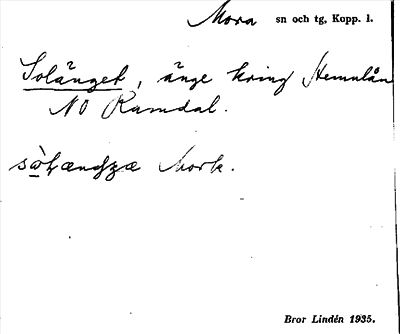 Mora sn och tg, Kopp. l.
Solänget, änge kring Hemulån
NO Ramdal.
Mork.
Bror Lindén 1935.